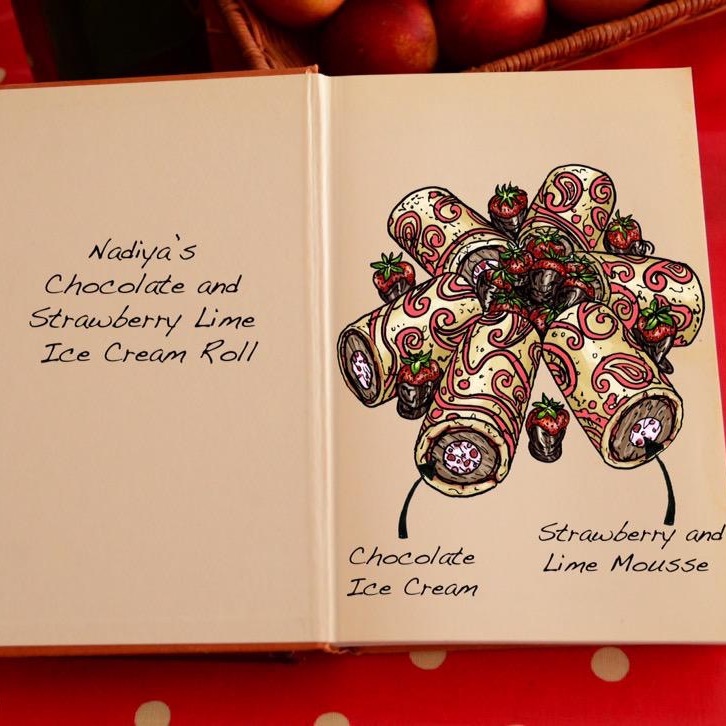 Nadiya's
Chocolate and
Strawberry Lime
Ice Cream Roll
Chocolate
Ice Cream
Strawberry and
Lime Mousse